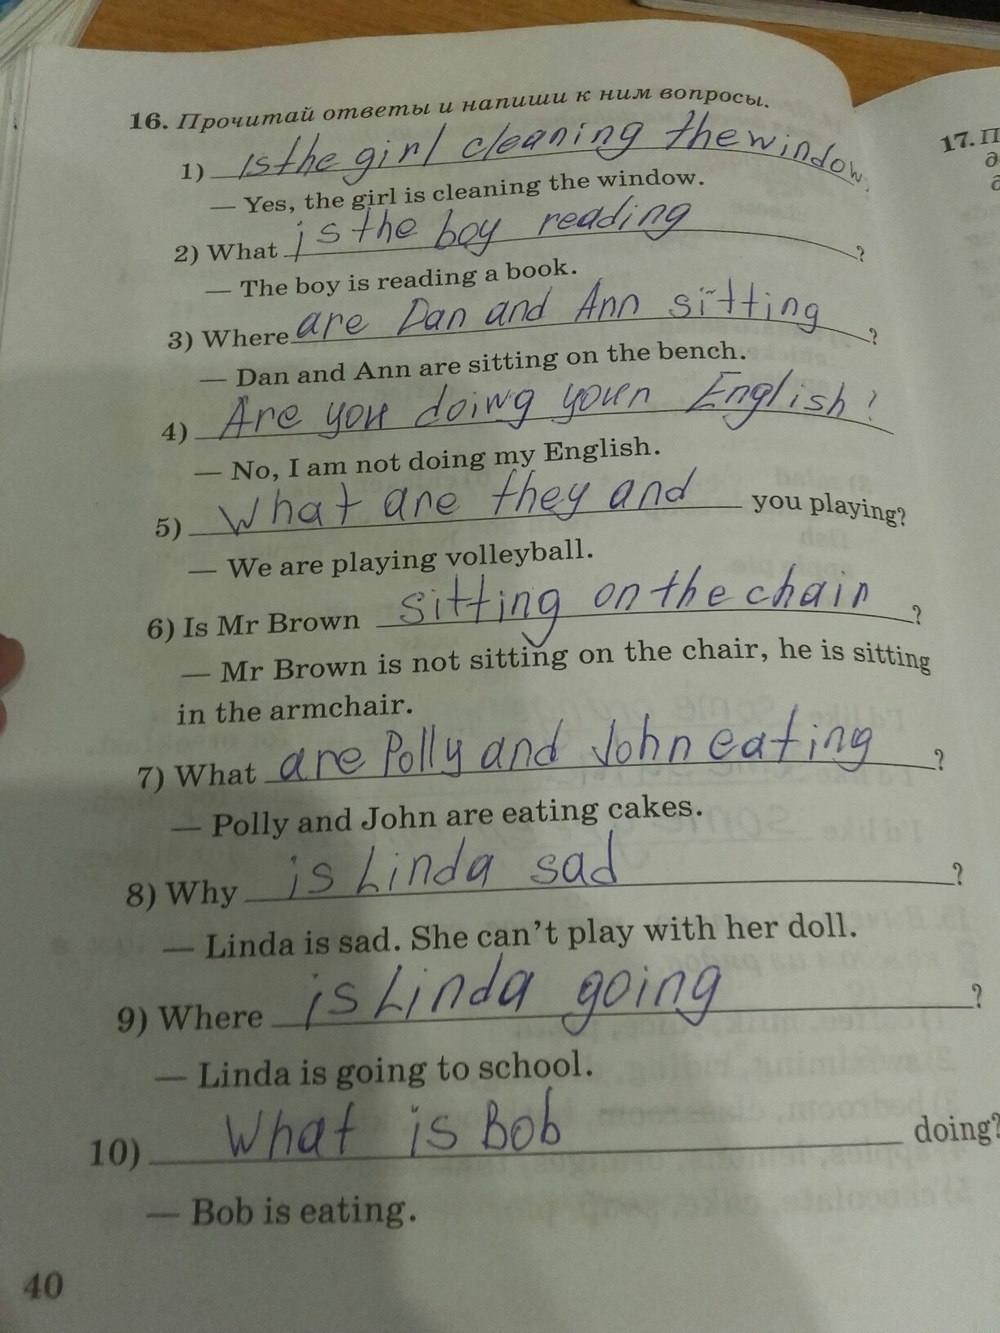 16. Прочитай ответы и напиши к ним вопросы.
1) Is the girl cleaning the window.
— Yes, the girl is cleaning the window.
2) What is the boy reading ?
— The boy is reading a book.
3) Where are Dan and Ann sitting ?
— Dan and Ann are sitting on the bench.
4) Are you doing your English?
— No, I am not doing my English.
5) What are they and you playing?
— We are playing volleyball.
6) Is Mr Brown sitting on the chair ?
— Mr Brown is not sitting on the chair, he is sitting
in the armchair.
7) What are Polly and John eating ?
— Polly and John are eating cakes.
8) Why is Linda sad ?
— Linda is sad. She can't play with her doll.
9) Where is Linda going ?
— Linda is going to school.
10) What is Bob doing?
— Bob is eating.
40
17. П